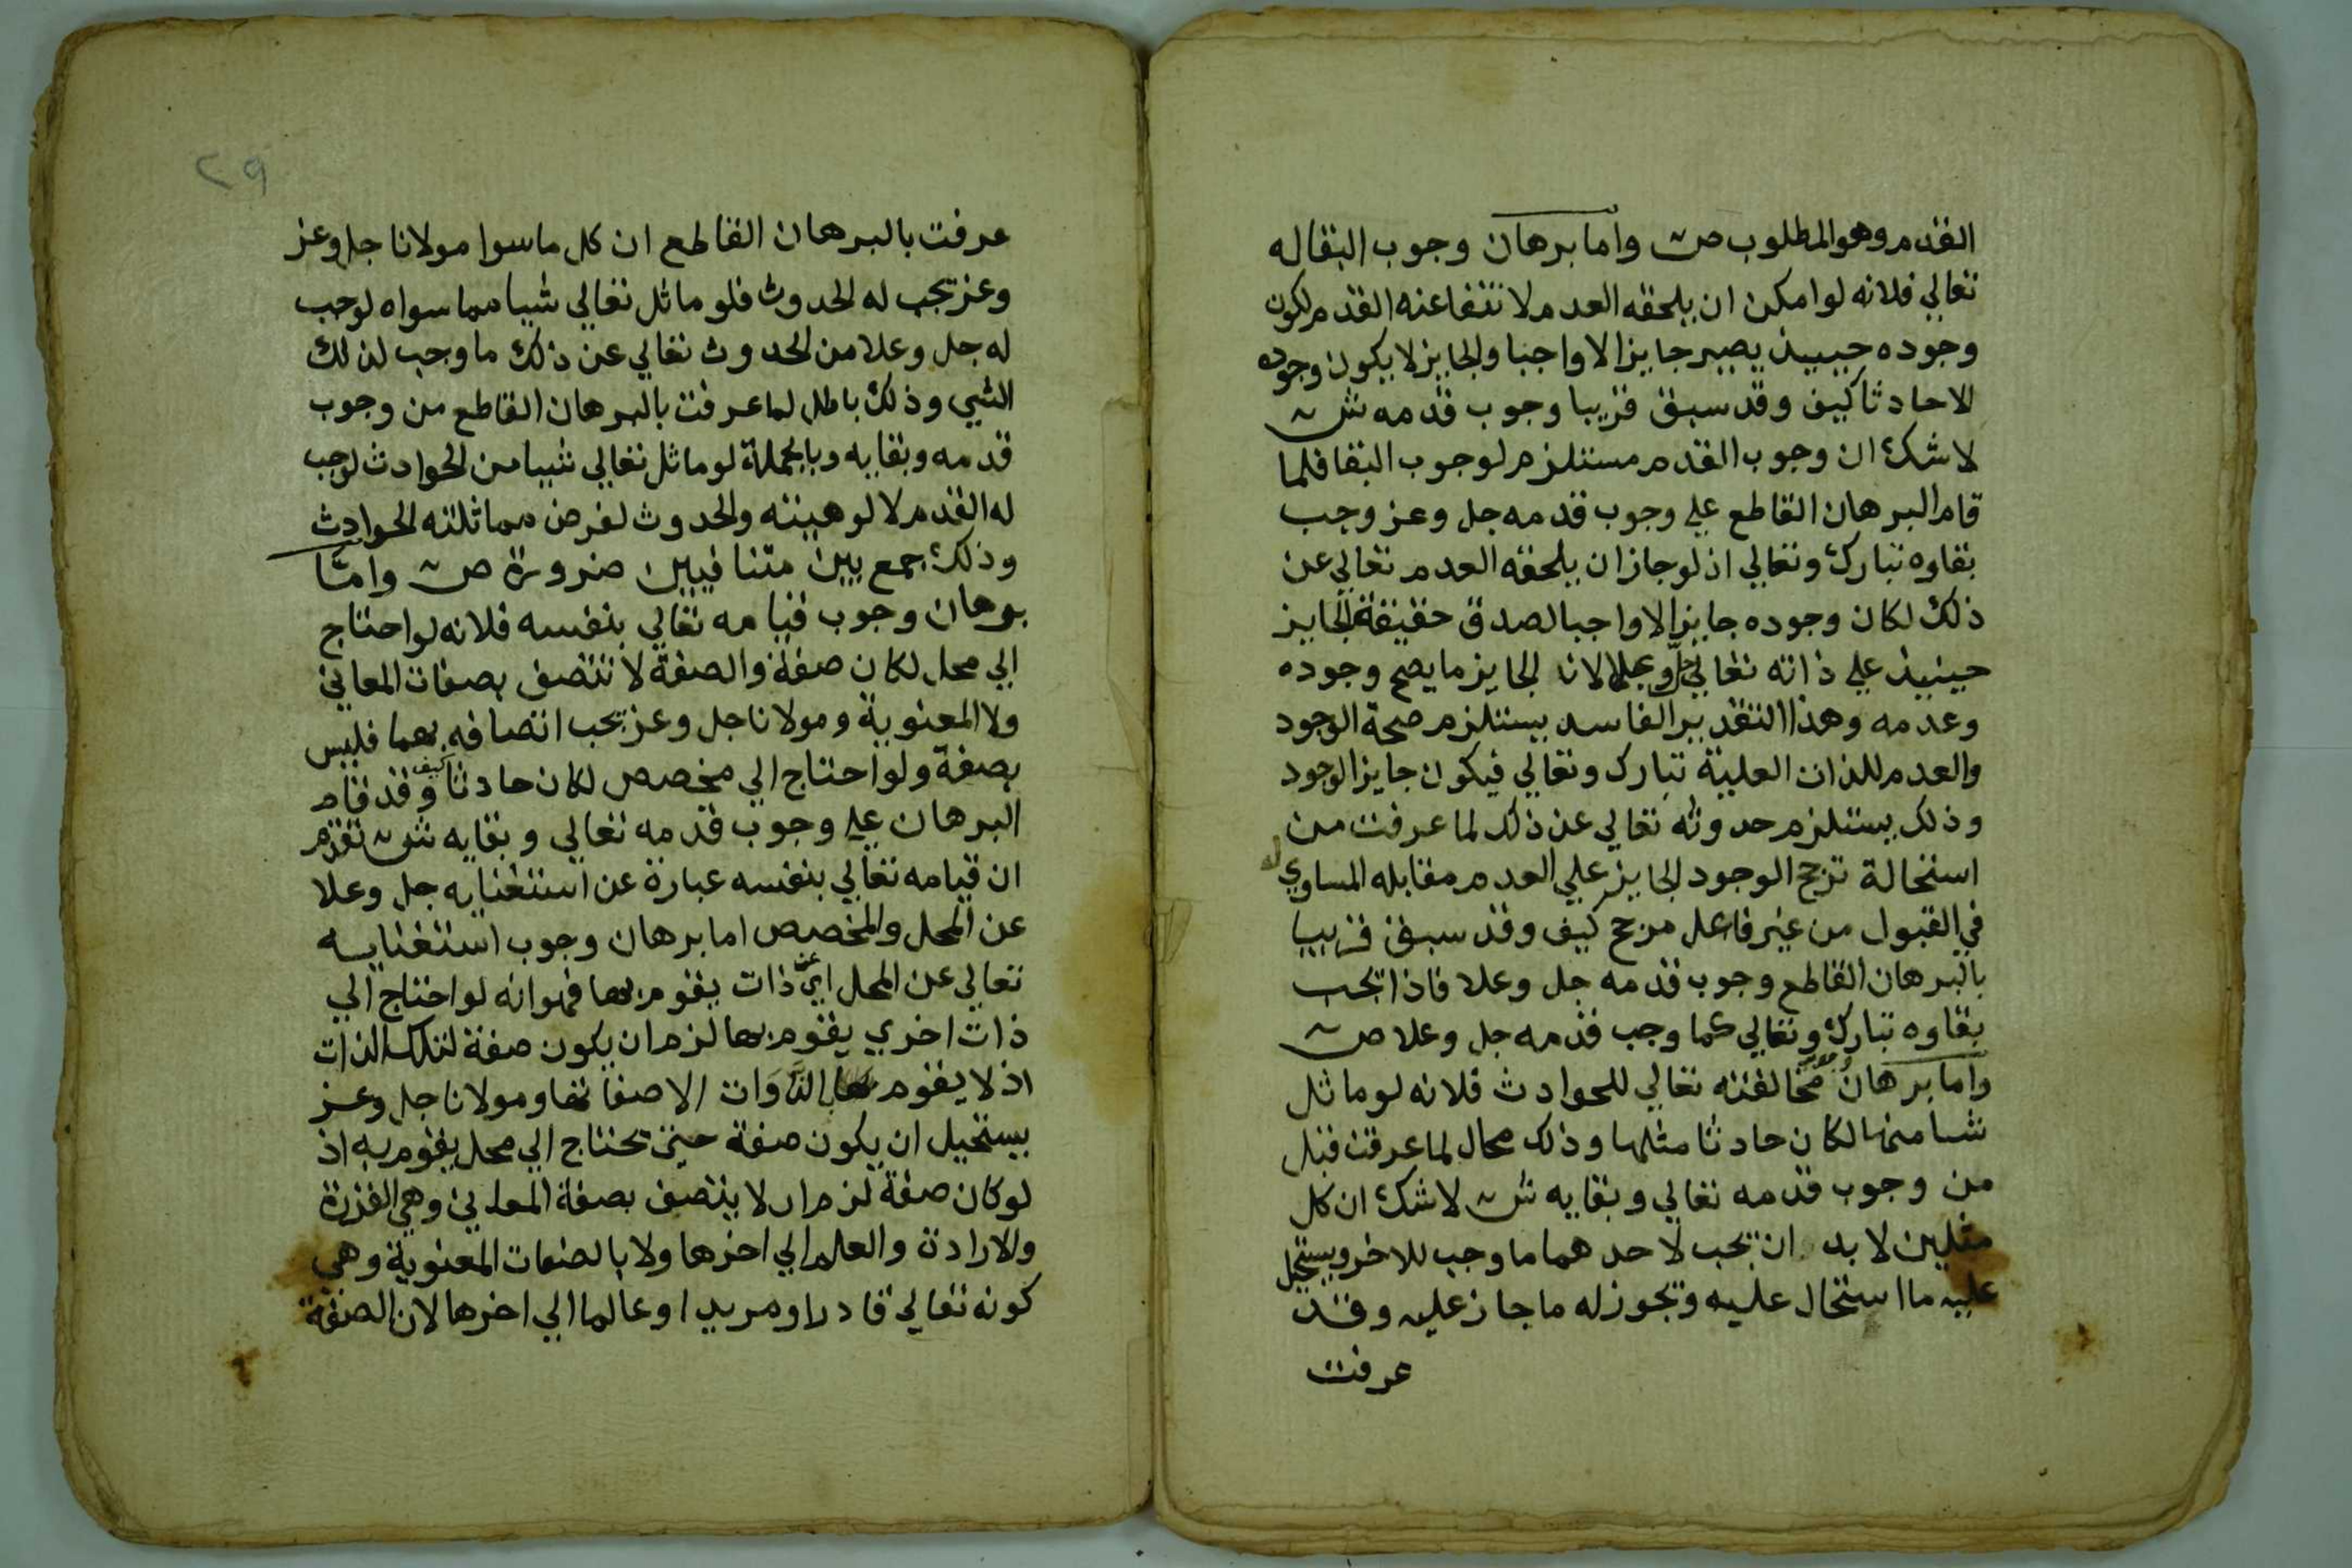 القدم وهو المطلوب ص واما برهان وجوب البقاله
تعالي فلانه لوامكن ان يلحقه العدم لانتفاعنه القدم لكون
وجوده حيييذ يصير جايزا لاواجبا والجايز لا يكون وجوده
الاحادثا كيف وقد سبق قريبا وجوب قدمه ش
لاشك ان وجوب القدم مستلزم لوجوب البقا فلما
قام البرهان القاطع علي وجوب قدمه جل وعز وجب
بقاوه تبارك وتعالي اذ لوجاز ان يلحقه العدم تعالي عن
ذلك لكان وجوده جايزا لاواجبا لصدق حقيقة الجايز
حينيذ علي ذاته تعالي جل وعلا لان الجايز ما يصح وجوده
وعدمه وهذا التقدير الفاسد يستلزم صحة الوجود
والعدم للذات العلية تبارك وتعالي فيكون جايز الوجود
وذلك يستلزم حدوثه تعالي عن ذلك لما عرفت من
استحالة ترجح الوجود الجايز علي العدم مقابله المساوي له
في القبول من غير فاعل مرجح كيف وقد سبق قريبا
بالبرهان القاطع وجوب قدمه جل وعلا فاذا تجب
بقاوه تبارك وتعالي كما وجب قدمه جل وعلا ص
واما برهان مخالفته تعالي للحوادث فلانه لوماثل
شيا منها لكان حادثا مثلها وذلك محال لما عرفت قبل
من وجوب قدمه تعالي وبقايه ش لاشك ان كل
مثلين لابد ان تجب لاحدهما ما وجب للاخر ويستحيل
عليه ما استحال عليه وتجوزله ما جاز عليه وقد
عرفت
٢٩
عرفت بالبرهان القاطع ان كل ماسوا مولانا جل وعز
وعز تجب له الحدوث فلو ماثل تعالي شييا مما سواه لوجب
له جل وعلا من الحدوث تعالي عن ذلك ما وجب لذلك
الشي وذلك باطل لما عرفت بالبرهان القاطع من وجوب
قدمه وبقايه وبالجملة لوماثل تعالي شييا من الحوادث لوجب
له القدم لالوهيته والحدوث لفرض مماثلته الحوادث
وذلك جمع بين متنافيين ضرورة ص واما
برهان وجوب قيامه تعالي بنفسه فلانه لواحتاج
الي محل لكان صفة والصفة لا تتصف بصفات المعاني
ولا المعنوية ومولانا جل وعز تجب اتصافه بهما فليس
بصفة ولو احتاج الي مخصص لكان حادثا كيف وقد قام
البرهان علي وجوب قدمه تعالي وبقايه ش تقدم
ان قيامه تعالي بنفسه عبارة عن استغنايه جل وعلا
عن المحل والمخصص اما برهان وجوب استغنايه
تعالي عن المحل اي عن ذات يقوم بها فهوانه لواحتاج الي
ذات اخري يقوم بها لزم ان يكون صفة لتلك الذات
اذ لا يقوم بالذَّوَات الا صفاتها ومولانا جل وعز
يستحيل ان يكون صفة حيتي تحتاج الي محل يقوم به اذ
لوكان صفة لزم ان لا يتصف بصفة المعاني وهي القدرة
والارادة والعلم الي اخرها ولا بالصفات المعنوية وهي
كونه تعالي قادرا ومريدا وعالما الي اخرها لان الصفة